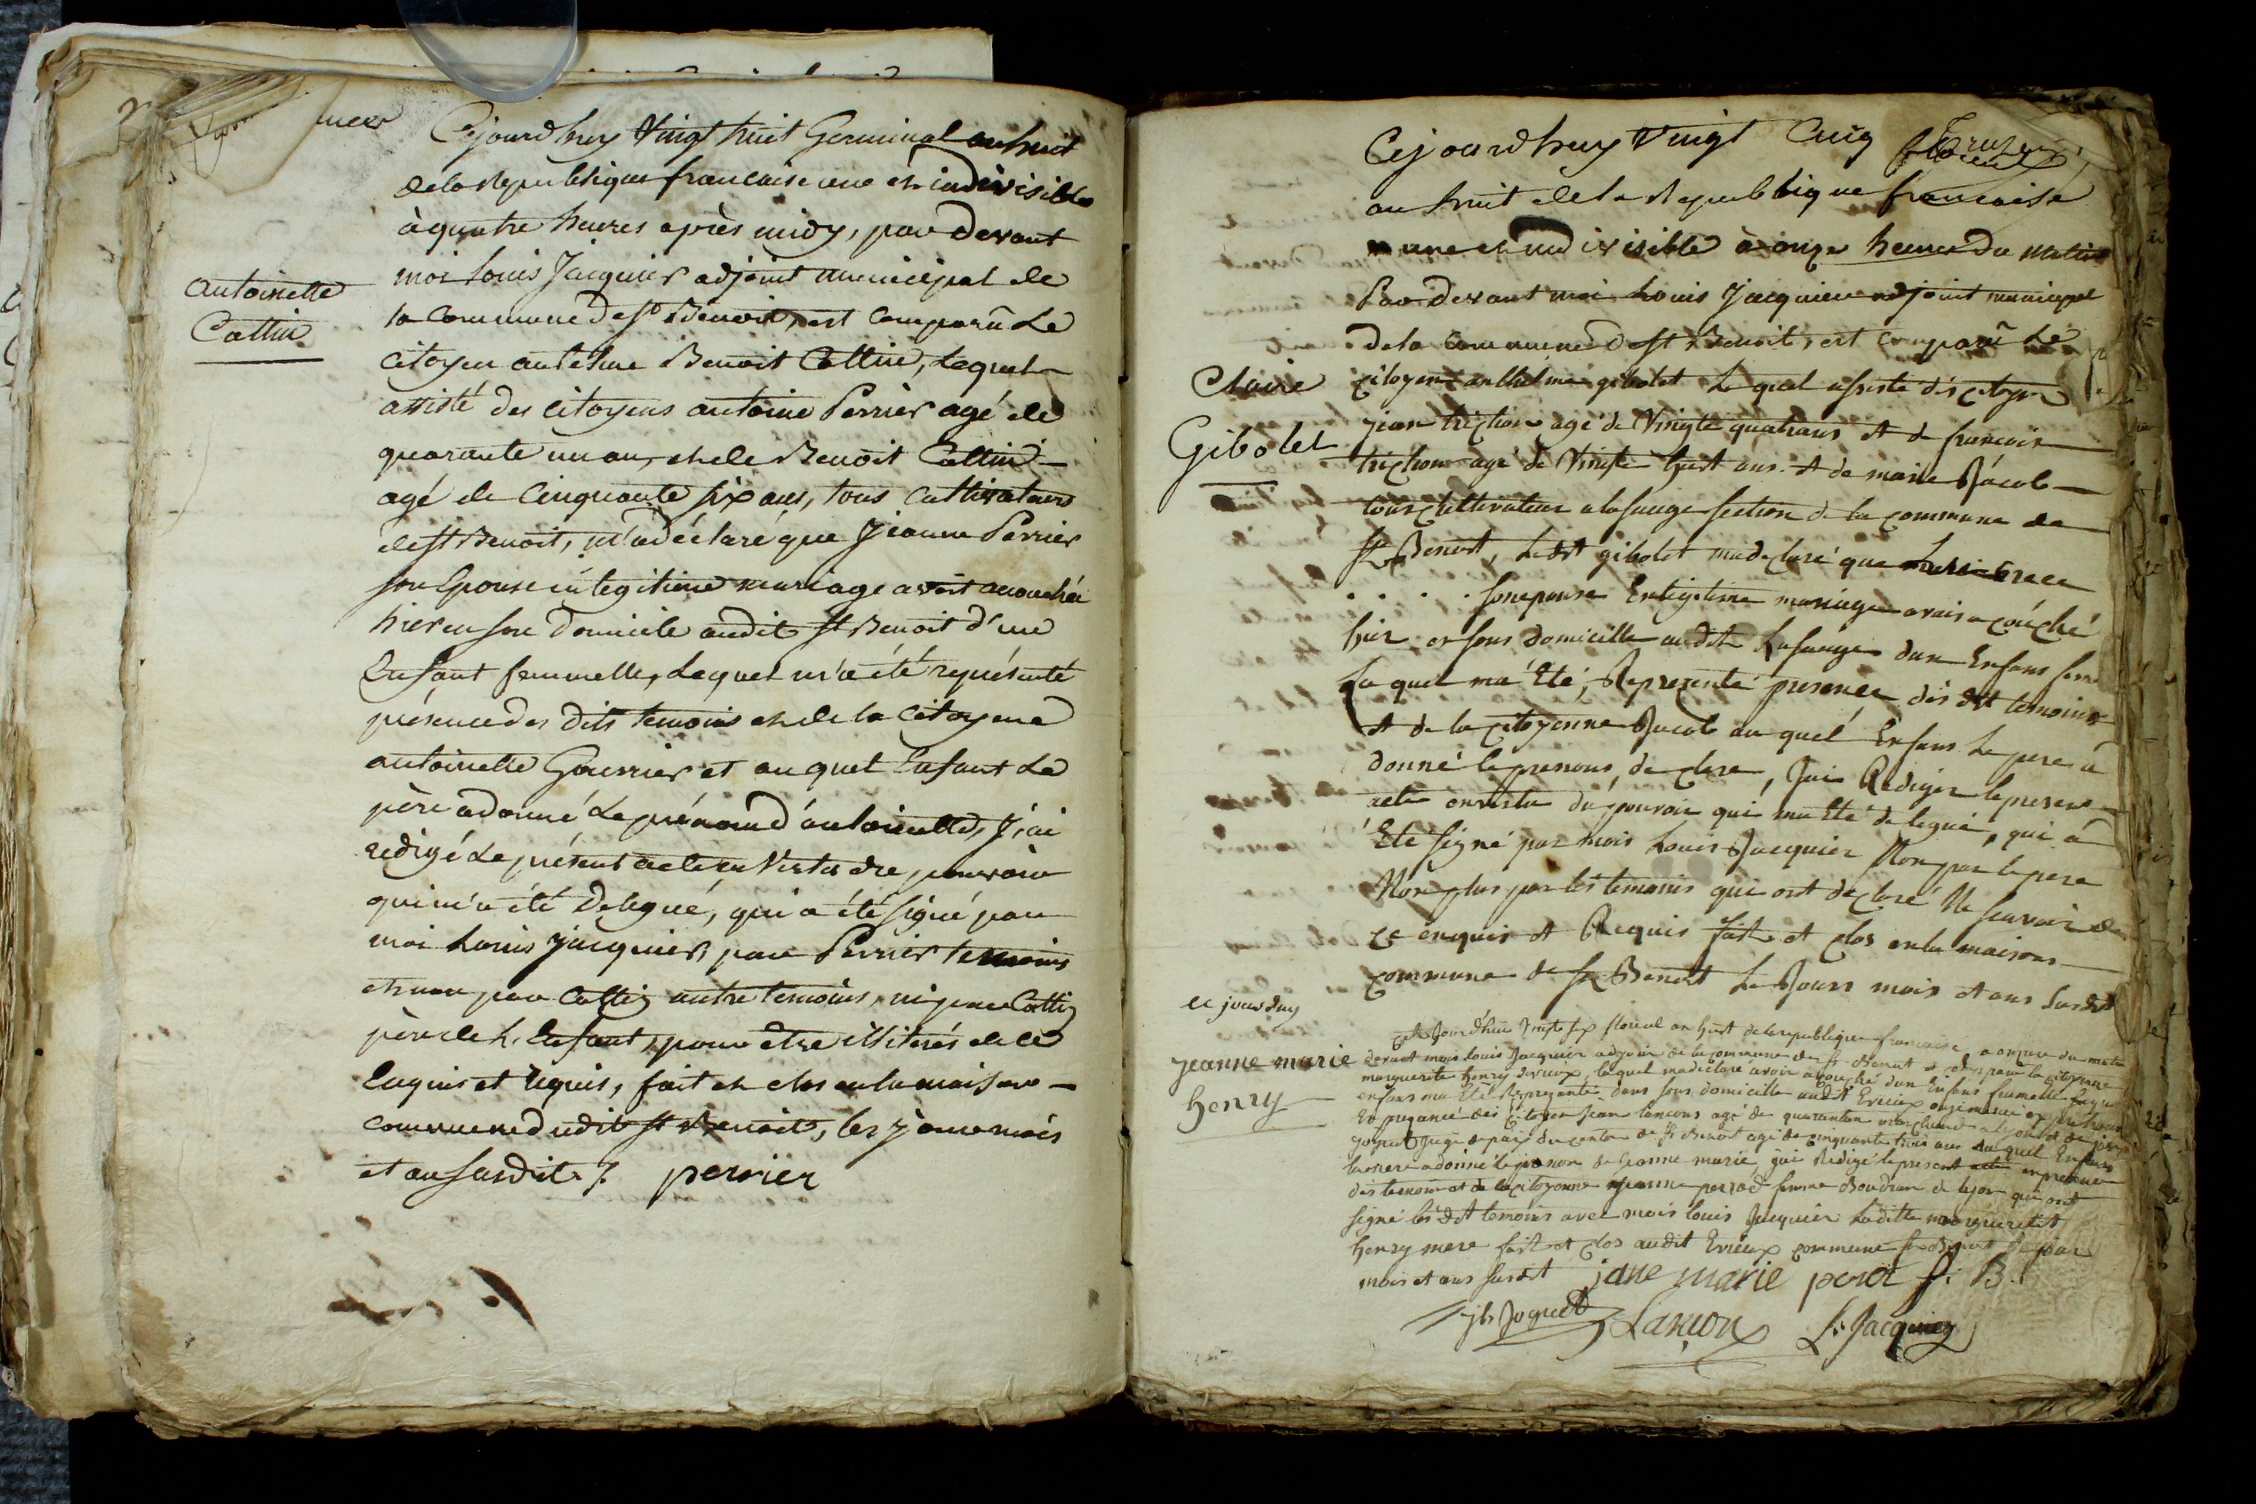 Cejourdhuy Vingt huit Germinal an huit
de la Republique francaise une et indivisible
à quatre heures après midy, par devant
moi Louis Jacquier adjoint municipal de
la Commune de St Benoit, est comparû Le
Citoyen antelme Benoit Cattin, Lequel
assisté des citoyens antoine Perrier agé de
quarante un an, et de Benoit Cattin
agé de Cinquante six ans, tous cultivateurs
de St Benoit, m'a déclaré que Jeanne Perrier
son Epouse en legitime mariage avoit accouchée
hier en son Domicile audit St Benoit d'une
Enfant femmelle, Lequel m'a été représenté
présence des dits temoins et de la Citoyene
antoinette et auquel Enfant Le
père a donné Le prénom d'antoinette, J'ai
redigé Le présent acte en Vertu du pouvoir
qui m'a été Delegué, qui a été signé par
moi Louis Jacquier, par Perrier temoins
et non par Cattin autre temoins, ni par Cattin
père de L'Enfant, pour etre illiterés de ce
Enquis et requis, fait et clos en la maison
commune dudit St Benoit, les jour mois
et an susdits /. perrier
antoinette
Cattin
Cejourdhuy Vingt Cinq
an huit de la Republique francaise
une et indivisible à onze heures du Matin
Par devant moi Louis Jacquier adjoint municipal
de la commune de St Benoit, est comparû Le
citoyen anthelme gibolet Le quel assisté des citoyen
jean trichon agé de Vingte quatrans et de francois
trichon agé de Vingte huit ans et de marie Jacob
tous cultivateur a la sauge section de la commune de
St Benoit, Ledit gibolet ma declaré que
. . . . son epouse En legitime mariage avais acouché
hier en sons domicille audit La sauge dun Enfans
La quel ma Eté, Represente presence dés dit temoins
et de la citoyenne Jacob au quel Enfans Le pere a
donné le prenons de clere, Jai Rediger le present
acte en vertu du pouvoir qui ma Eté delegué, qui a
Eté signé par mois Louis Jacquier Non par le pere
Non plus par les temoins qui ont declaré Ne scavoir de
ce enquis et Requis fait et clos en la maisons
commune de St Benoit Le Jours mois et ans Susdit
Claire
Gibolet
ce jourdhuy
Jeanne marie
henry
Ce Jourdhui Vingt six floreal an huit de la republique francaise, a onze du matin
devant mois louis Jacquier adjoin de la commune de St Benoit et comparue la citoyenne
marguerite henry, la quel ma declare avoir acouché dun Enfans femmelle Laquel
enfans ma Eté Represente dans sons domicille audit Evieux
En presance des Citoyen Jean lancons agé de quarante
Joguet Juge de paix du canton de St Benoit agé de cinquante trois ans au quel Enfans
la mere a donné le prenom de Jeanne marie, jai Redige le present acte en presence
des temoin et de la citoyenne Jeanne perrod femme Boudran de qui ont
signé les dit temoins avec mois louis Jacquier Laditte marguerite
henry mere fait et clos audit Evieux commune St Benoit Le jour
mois et ans susdit jane marie perot f. B.
Joguet Lançon L. Jacquier